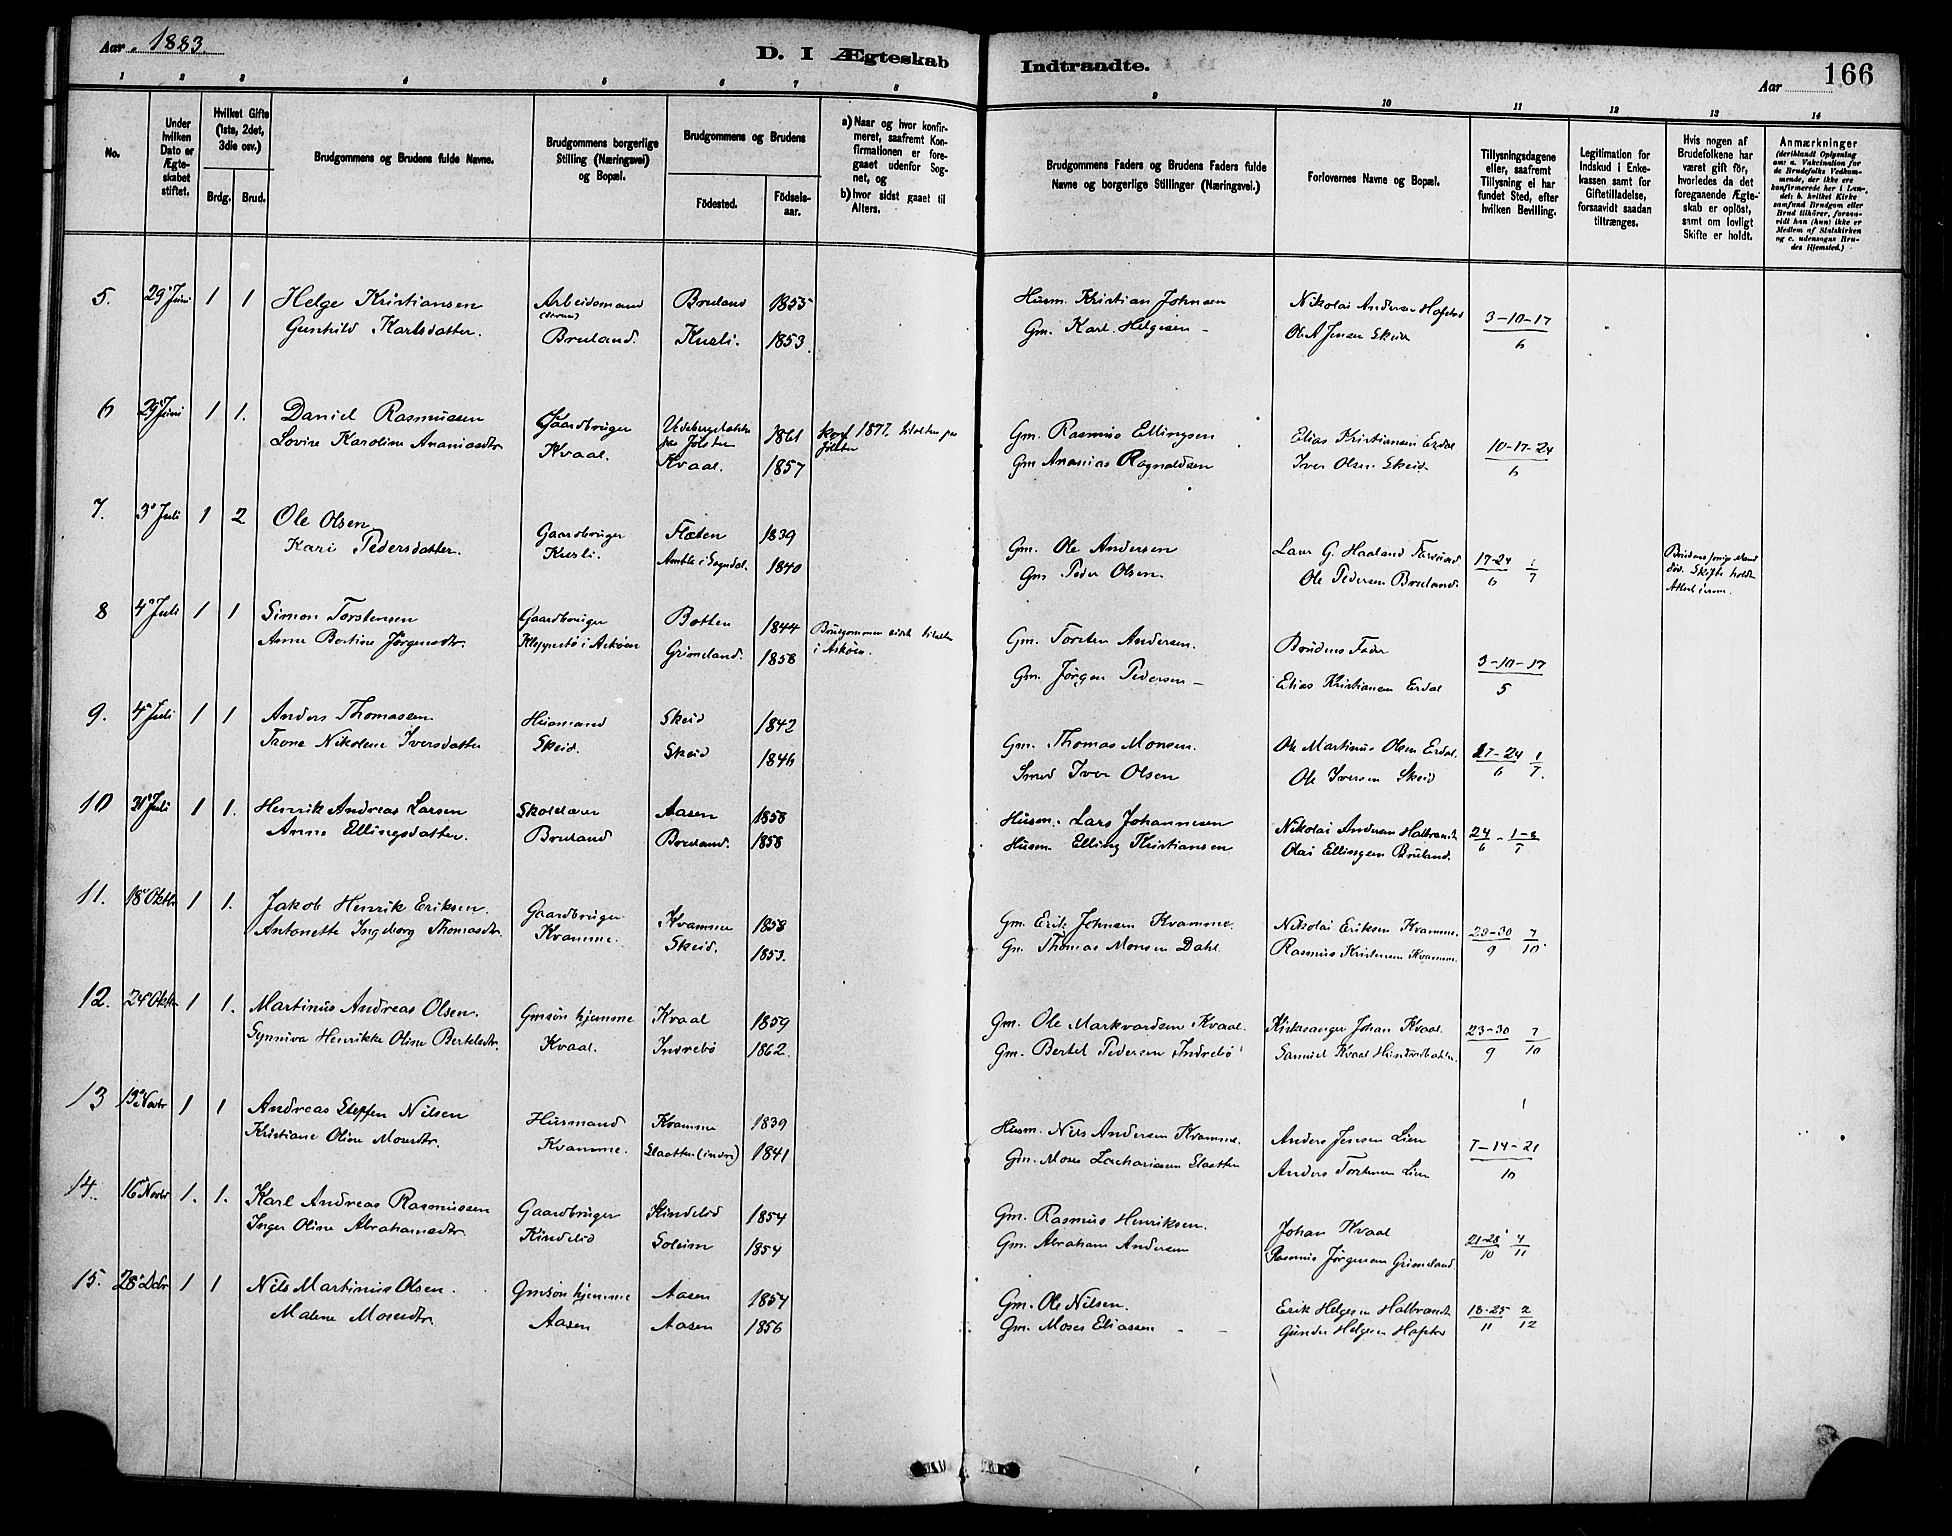 Aar 1883.
D. I Ægteskab Indtraadte.
Aar
166
1 2 3 4 5 6 7 8 9 10 11 12 13 14
No.
Under hvilken Dato er Ægte-skabet stiftet.
Hvilket Gifte (1ste, 2det, 3die osv.)
Brdg. Brud.
Brudgommens og Brudens fulde Navne.
Brudgommens borgerlige Stilling (Næringsvei) og Bopæl.
Brudgommens og Brudens
Födested.
Födsels-aar.
a) Naar og hvor konfir-meret, saafremt Kon-firmationen er fore-gaaet udenfor Sog-net, og
b) hvor sidst gaaet til Alters.
Brudgommens Faders og Brudens Faders fulde Navne og borgerlige Stillinger (Næringsvei.)
Forlovernes Navne og Bopæl.
Tillysningsdagene eller, saafremt Tillysning ei har fundet Sted, efter hvilken Bevilling.
Legitimation for Indskud i Enke-kassen samt for Giftetilladelse, forsaavidt saadan tiltrænges.
Hvis nogen af Brudefolkene har været gift för, hvorledes da det foregaaende Ægte-skab er oplöst, samt om lovligt Skifte er holdt.
Anmærkninger
5. 29 Juni 1 1 Helge Kristiansen Arbeidsmand Bruland 1855 Husm. Kristian Johnsen Nikolai Andersen Hafstad 3-10-17
Gunhild Karlsdatter. Bruland. Kusli. 1853. Gm. Karl Helgesen Ole A Jensen Skeid 6
6 29 Juni 1 1. Daniel Rasmussen Gaardbruger 1861 konf 1877 Gm. Rasmus Ellingsen Elias Kristiansen Erdal 10-17-24
Lovise Karoline Ananiasdtr Kvaal. Kvaal. 1857 Jölster Gm Ananias Ragnaldsen Iver Olsen Skeid 6
7. 3 Juli 1 2 Ole Olsen Gaardbruger Flæten 1839 Gm. Ole Andersen Lars G. Haaland 17-24 1
Kari Pedersdatter. Kusli. Amble i Sogndal. 1840 Gm Peder Olsen. Ole Pedersen Bruland. 6 7
8 4 Juli 1 1 Simon Torstensen Gaardbruger Botten 1844 Brudgommen sidst Gm. Torsten Andersen. Brudens Fader 3-10-17
Anne Bertine Jörgensdtr. Kleppestö i Asköen Grimeland. 1858 i Asköen. Gm. Jörgen Pedersen Elias Kristiansen Erdal 5
9. 4 Juli 1 1 Anders Thomassen Husmand Skeid 1842 Gm. Thomas Monsen. Ole Martinus Olsen Erdal. 17-24 1
Trone Nikoline Iversdatter Skeid. Skeid 1846 Smed Iver Olsen Ole Iversen Skeid 6 7.
10 Juli 1 1. Henrik Andreas Larsen Skolelærer Aasen 1858 Husm. Lars Johannesen Nikolai Andersen Halbrandt 24 - 1-8
Anne Ellingsdatter. Bruland Bruland. 1858 Husm Elling Kristiansen Olai Ellingsen Bruland. 6 7
11. 18 Oktbr 1 1. Jakob Henrik Eriksen. Gaardbruger Kvamme 1858 Gm. Erik Johnsen Kvamme. Nikolai Eriksen Kvamme. 23-30 7
Antonette Ingeborg Thomasdtr. Kvamme. Skeid. 1853. Gm. Thomas Monsen Dahl Rasmus Kristensen Kvamme. 9 10.
12. 24 Oktbr 1 1. Martinus Andreas Olsen. Gmsön hjemme Kvaal 1859 Gm. Ole Markvardsen Kvaal. Kirkesanger Johan Kvaal 23-30 7
Synniva Henrikke Oline Bertelsdtr. Kvaal. Indrebö 1862. Gm. Bertel Pedersen Indrebö Samuel Kvaal 9 10
13 13 Novbr 1 1 Andreas Steffen Nilsen Husmand Kvamme 1839 Husm. Nils Andersen Kvamme. Anders Jensen Lien 7-14-21
Kristiane Oline Mosesdtr. Kvamme. Slaatten (indre) 1841 Gm. Moses Zachariasen Slaatten Anders Torstensen Lien 10
14. 16 Novbr 1. 1. Karl Andreas Rasmussen Gaardbruger Kindelid 1854 Gm. Rasmus Henriksen. Johan Kvaal 21-28 4
Inger Oline Abrahamsdtr. Kindelid Soleim 1854 Gm. Abraham Andersen Rasmus Jörgensen Grimeland. 10 11
15. 28 Decbr 1 1 Nils Martinus Olsen. Gmsön hjemme Aasen 1854 Gm. Ole Nilsen. Erik Helgesen Halbrandt 18-25 2
Malene Mosesdtr. Aasen Aasen 1856 Gm. Moses Eliassen Gunder Helgesen Hafstad 11 12